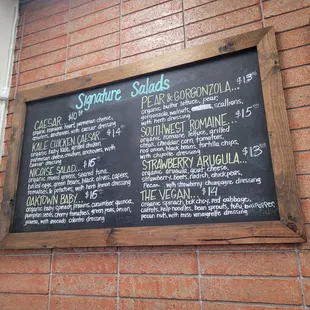 Signature Salads
CAESAR.. $10
organic romaine heart, parmesan cheese,
croutons, with caesar dressing
KALE CHICKEN CAESAR.. $14
organic baby kale, grilled chicken,
parmesan cheese, croutons, anchovies, with
caesar dressing
NICOISE SALAD... $15
organic mixed greens, seared tuna,
boiled eggs, green beans, black olives, capers,
potatoes, tomatoes, with lemon herb dressing
OAKTOWN BABY.. $15
organic baby spinach, prawns, cucumber, quinoa,
pumpkin seeds, cherry tomatoes, green peas, onion,
with avocado dressing
PEAR & GORGONZOLA... $13
organic butter lettuce, pear,
gorgonzola, walnuts, scallions,
with herb dressing
SOUTHWEST ROMAINE.. $15
organic romaine lettuce, grilled
chicken, cheddar, corn, tomatoes,
red onion, black beans, tortilla
chips, with chipotle dressing
STRAWBERRY ARUGULA.. $13
organic arugula, goat cheese,
strawberry, beets, radish,
pecan with strawberry champagne dressing
THE VEGAN.. $14
organic spinach, bokchoy, red cabbage,
carrots, kelp noodles, bean sprouts, tofu,
pecan nuts with miso vinaigrette dressing